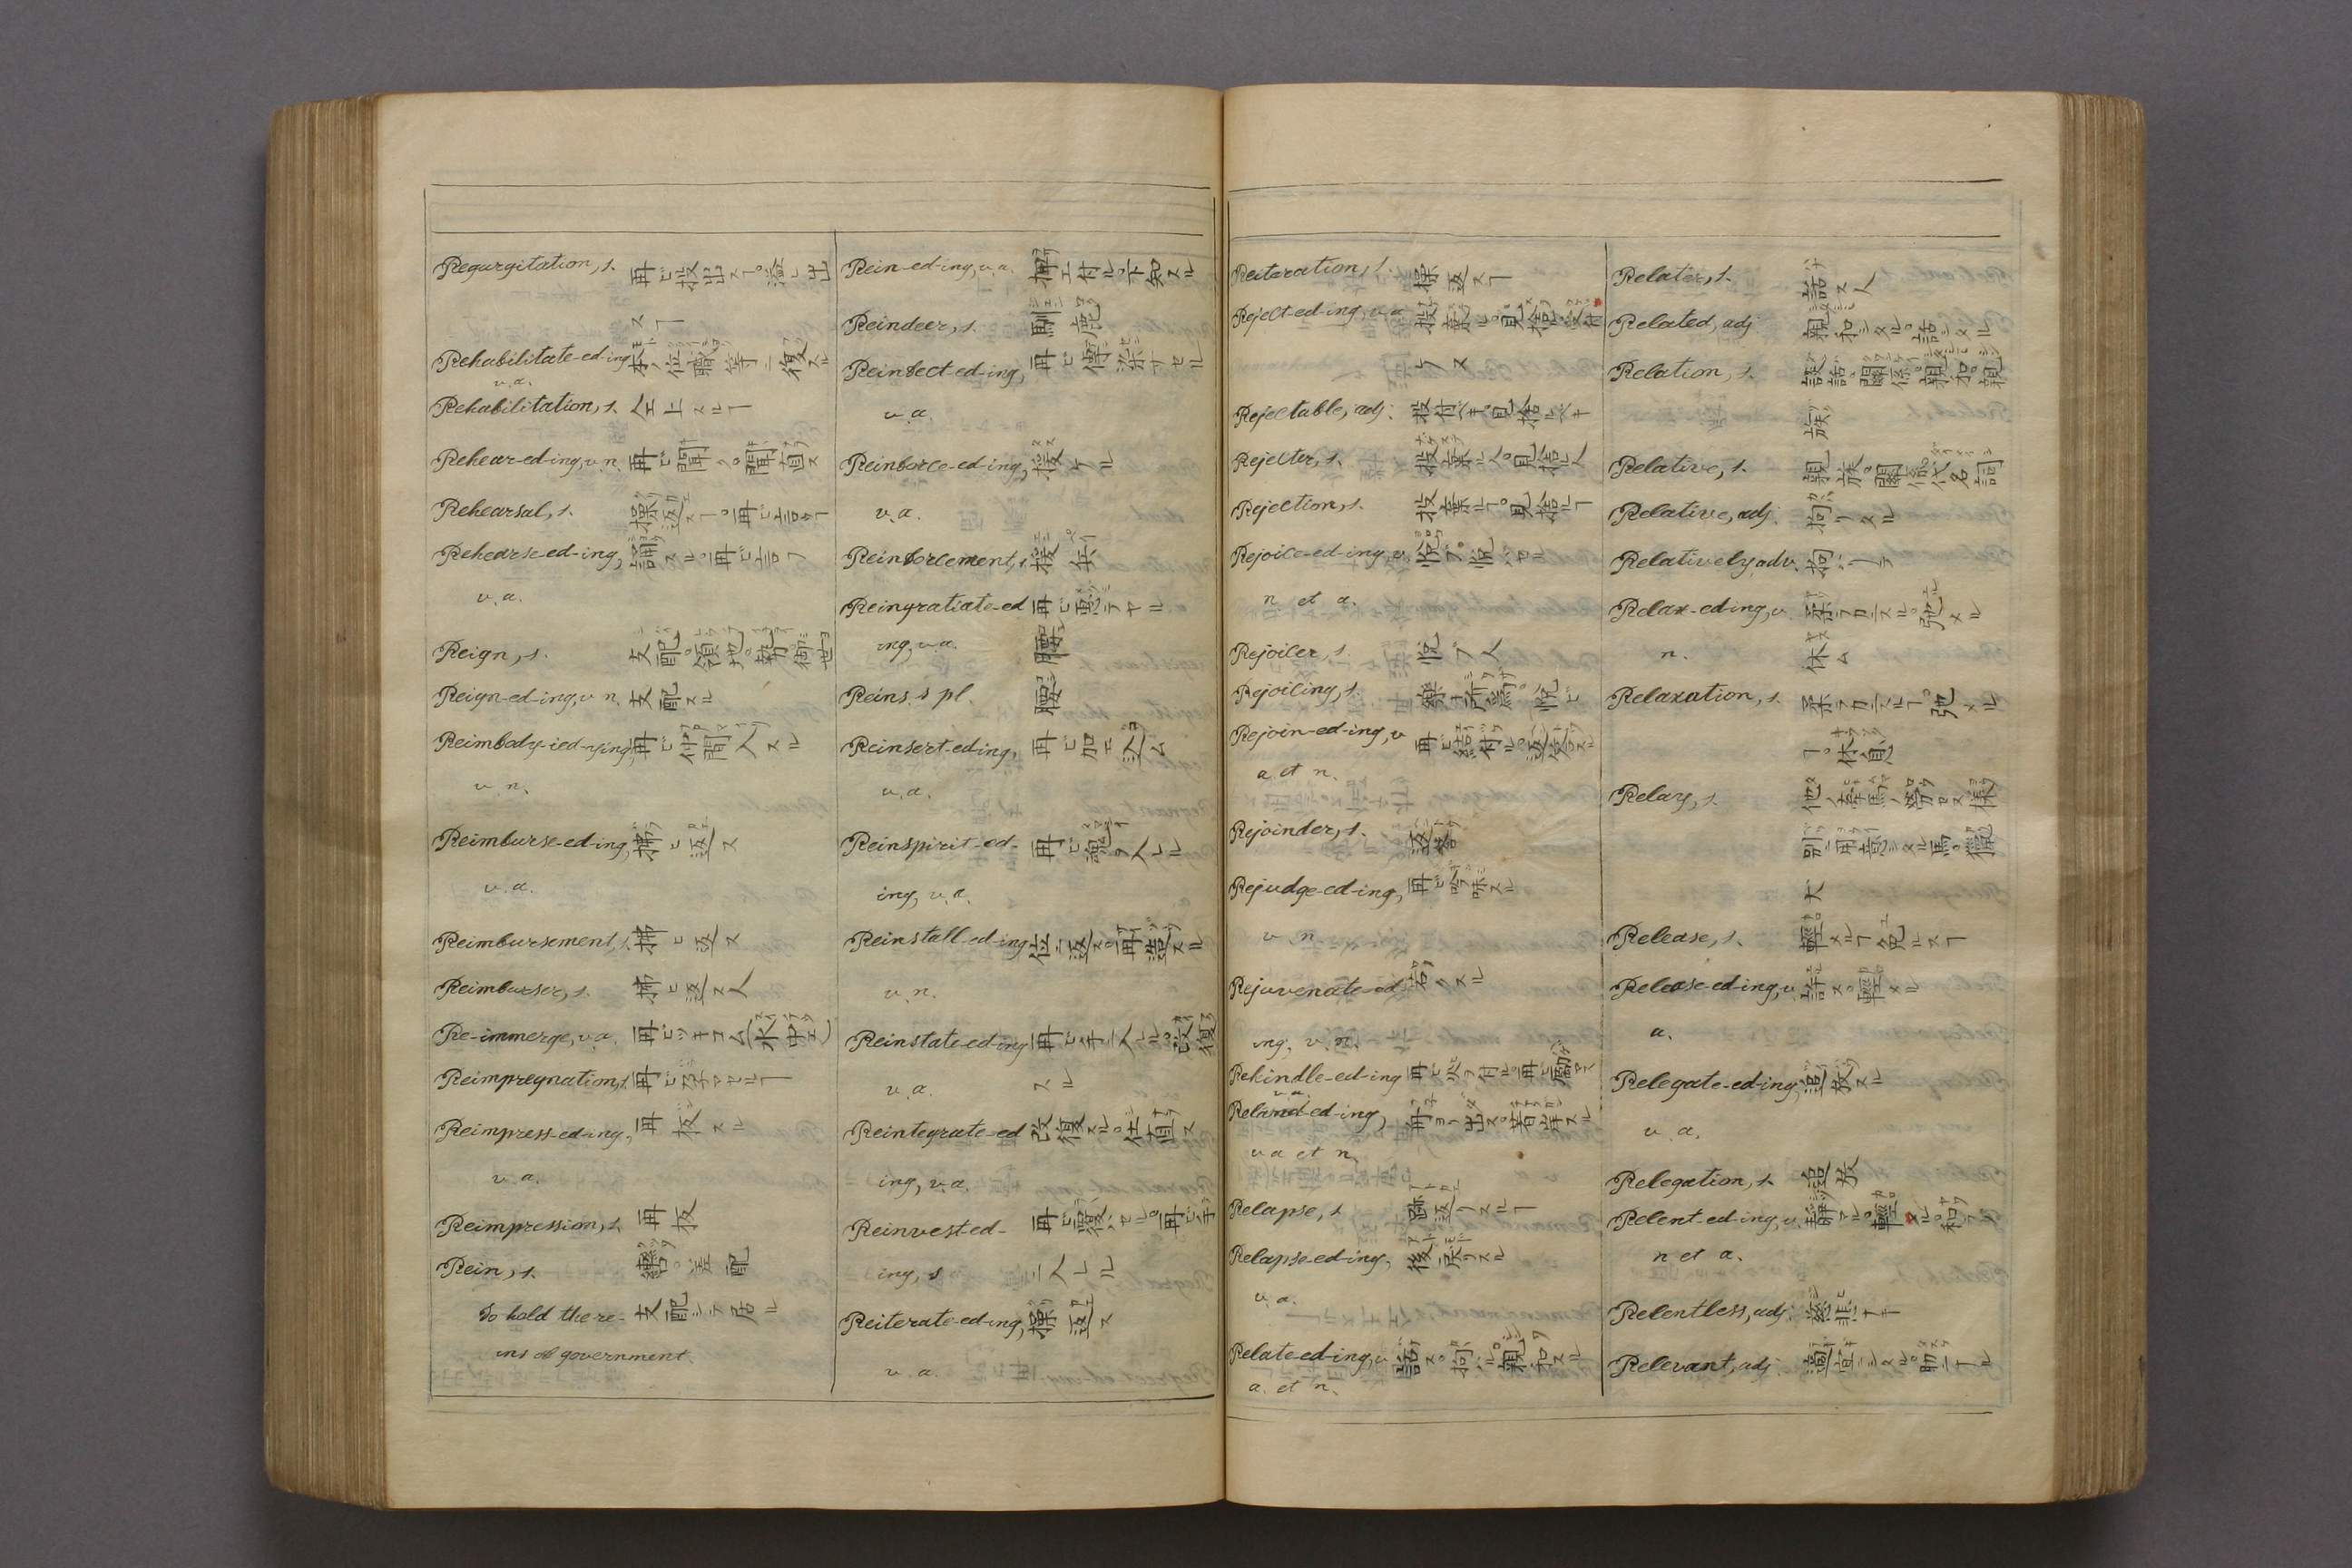 Regurgitation, s. 再ビ投出スヿ。溢レ出
スヿ
Rehabilitate-ed-ing 本ノ位職等ニ復スル
v. a.
Rehabilitation, s. 仝上スルヿ
Rehear-ed-ing, v. n. 再ビ聞ク。聞直ス
Rehearsal, s. 操返スヿ。再ビ言フヿ
Rehearse-ed-ing, 誦スル。再ビ言フ
v. a.
Reign, s. 支配。領地。勢。御世
Reign-ed-ing, v. n. 支配スル
Reimbody-ied-ying 再ビ仲間入スル
v. n.
Reimburse-ed-ing, 拂ヒ返ス
v. a.
Reimbursement, s. 拂ヒ返ス
Reimburser, s. 拂ヒ返ス人
Re-immerge, v. a. 再ビツキコム(水中エ)
Reimpregnation, s. 再ビ孕マセルヿ
Reimpress-ed-ing, 再板スル
v. a.
Reimpression, s. 再板
Rein, s. 轡。差配
To hold the re- 支配シテ居ル
ins of government.
Rein-ed-ing, v. a. 付ル。下知スル
Reindeer, s. 鹿
Reinfect-ed-ing, 再ビ傳染サセル
v. a.
Reinforce-ed-ing, 援ケル
v. a.
Reinforcement, s. 援兵
Reingratiate-ed 再ビ
ing, v. a.
Reins. s pl. 腰
Reinsert-ed-ing, 再ビ加エ込ム
v. a.
Reinspirit-ed- 再ビ魂ヲ入レル
ing, v. a.
Reinstall-ed-ing 位ニ返ス。再造スル
v. n.
Reinstate-ed-ing 再ビ手ニ入ル。改復
v. a. スル
Reintegrate-ed 改復スル。仕直ス
ing, v. a.
Reinvest-ed- 再ビ
ing, s ニ入レル
Reiterate-ed-ing, 操返ス
v. a.
Reiteration, s. 操返スヿ
Reject-ed-ing, v. a. 投棄ル。見捨ル。
ラヌ
Rejectable, adj.
Rejecter, s. 投棄ル人。見捨ル人
Rejection, s. 投棄ルヿ。見捨ルヿ
Rejoice-ed-ing, v. 悦ブ。悦バセル
n et a.
Rejoicer, s. 悦ブ人
Rejoicing, s. 悦ビ
Rejoin-ed-ing, v 再ビ結付ル。返答スル
a. et n.
Rejoinder, s. 返答
Rejudge-ed-ing, 再ビ吟味スル
v. n.
Rejuvenate-ed 若クスル
ing, v. n.
Rekindle-ed-ing 再ビ火ヲ付ル。再ビ勵マス
v. a.
Reland-ed-ing, 舟ヨリ出ス。着岸スル
v a et n.
Relapse, s 跡返リスルヿ
Relapse-ed-ing, 後戻リスル
v. a.
Relate-ed-ing, v 話ス。拘ハル。親和スル
a. et n.
Relater, s. 話ス人
Related, adj 親和シタル。話シタル
Relation, s. 談話。關係。親和。親
族
Relative, s. 親族。關係代名詞
Relative, adj. 拘リタル
Relatively, adv. 拘ハリテ
Relax-ed-ing, v. 柔カニスル。弛メル
n. 休ム
Relaxation, s. 柔カニスルヿ。弛メル
ヿ。休息
Relay, s. 他ノ牽馬ノ勞ヲ
別ニ用意シタル馬。獵
犬
Release, s. 輕メルヿ。免ルスヿ
Release-ed-ing, v. 許ス。輕メル
a.
Relegate-ed-ing, 追放スル
v. a.
Relegation, s. 追放
Relent-ed-ing, v. 靜マル。輕メル。和ラグ
n et a.
Relentless, adj. 慈悲ナキ
Relevant, adj. 適宜シタル。助ニナル